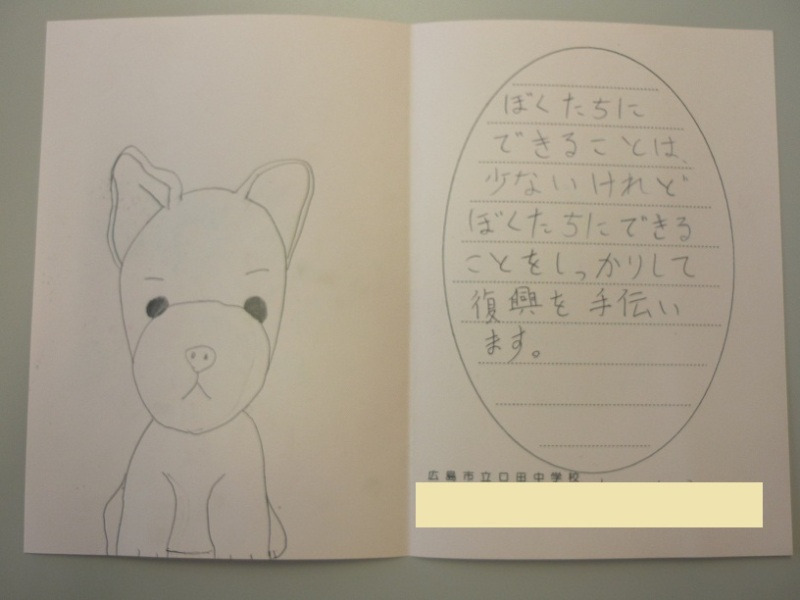 ぼくたちに
できることは、
少ないけれど
ぼくたちにできる
ことをしっかりして
復興を手伝い
ます。
広島市立口田中学校